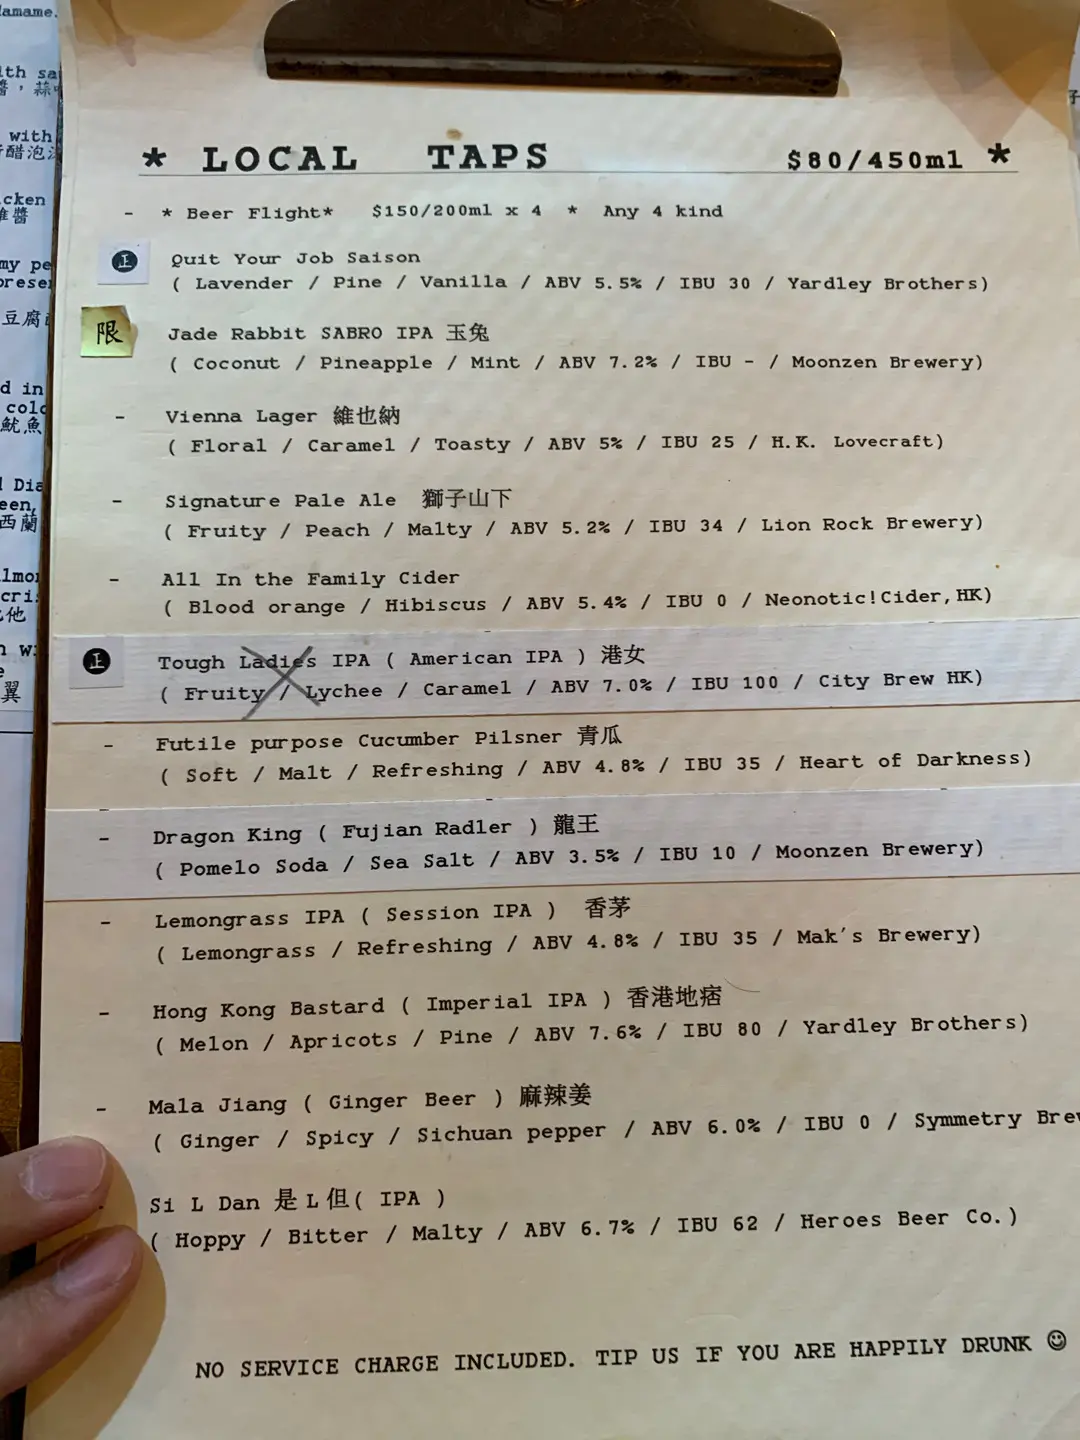 * LOCAL TAPS $80/450ml *
- * Beer Flight* $150/200ml x 4 * Any 4 kind
正 Quit Your Job Saison
( Lavender / Pine / Vanilla / ABV 5.5% / IBU 30 / Yardley Brothers)
限 Jade Rabbit SABRO IPA 玉兔
( Coconut / Pineapple / Mint / ABV 7.2% / IBU - / Moonzen Brewery)
- Vienna Lager 維也納
( Floral / Caramel / Toasty / ABV 5% / IBU 25 / H.K. Lovecraft)
- Signature Pale Ale 獅子山下
( Fruity / Peach / Malty / ABV 5.2% / IBU 34 / Lion Rock Brewery)
- All In the Family Cider
( Blood orange / Hibiscus / ABV 5.4% / IBU 0 / Neonotic!Cider,HK)
正 Tough Ladies IPA ( American IPA ) 港女
( Fruity / Lychee / Caramel / ABV 7.0% / IBU 100 / City Brew HK)
- Futile purpose Cucumber Pilsner 青瓜
( Soft / Malt / Refreshing / ABV 4.8% / IBU 35 / Heart of Darkness)
- Dragon King ( Fujian Radler ) 龍王
( Pomelo Soda / Sea Salt / ABV 3.5% / IBU 10 / Moonzen Brewery)
- Lemongrass IPA ( Session IPA ) 香茅
( Lemongrass / Refreshing / ABV 4.8% / IBU 35 / Mak's Brewery)
- Hong Kong Bastard ( Imperial IPA ) 香港地痞
( Melon / Apricots / Pine / ABV 7.6% / IBU 80 / Yardley Brothers)
- Mala Jiang ( Ginger Beer ) 麻辣姜
( Ginger / Spicy / Sichuan pepper / ABV 6.0% / IBU 0 / Symmetry Brew
Si L Dan 是L但( IPA )
( Hoppy / Bitter / Malty / ABV 6.7% / IBU 62 / Heroes Beer Co.)
NO SERVICE CHARGE INCLUDED. TIP US IF YOU ARE HAPPILY DRUNK ☺